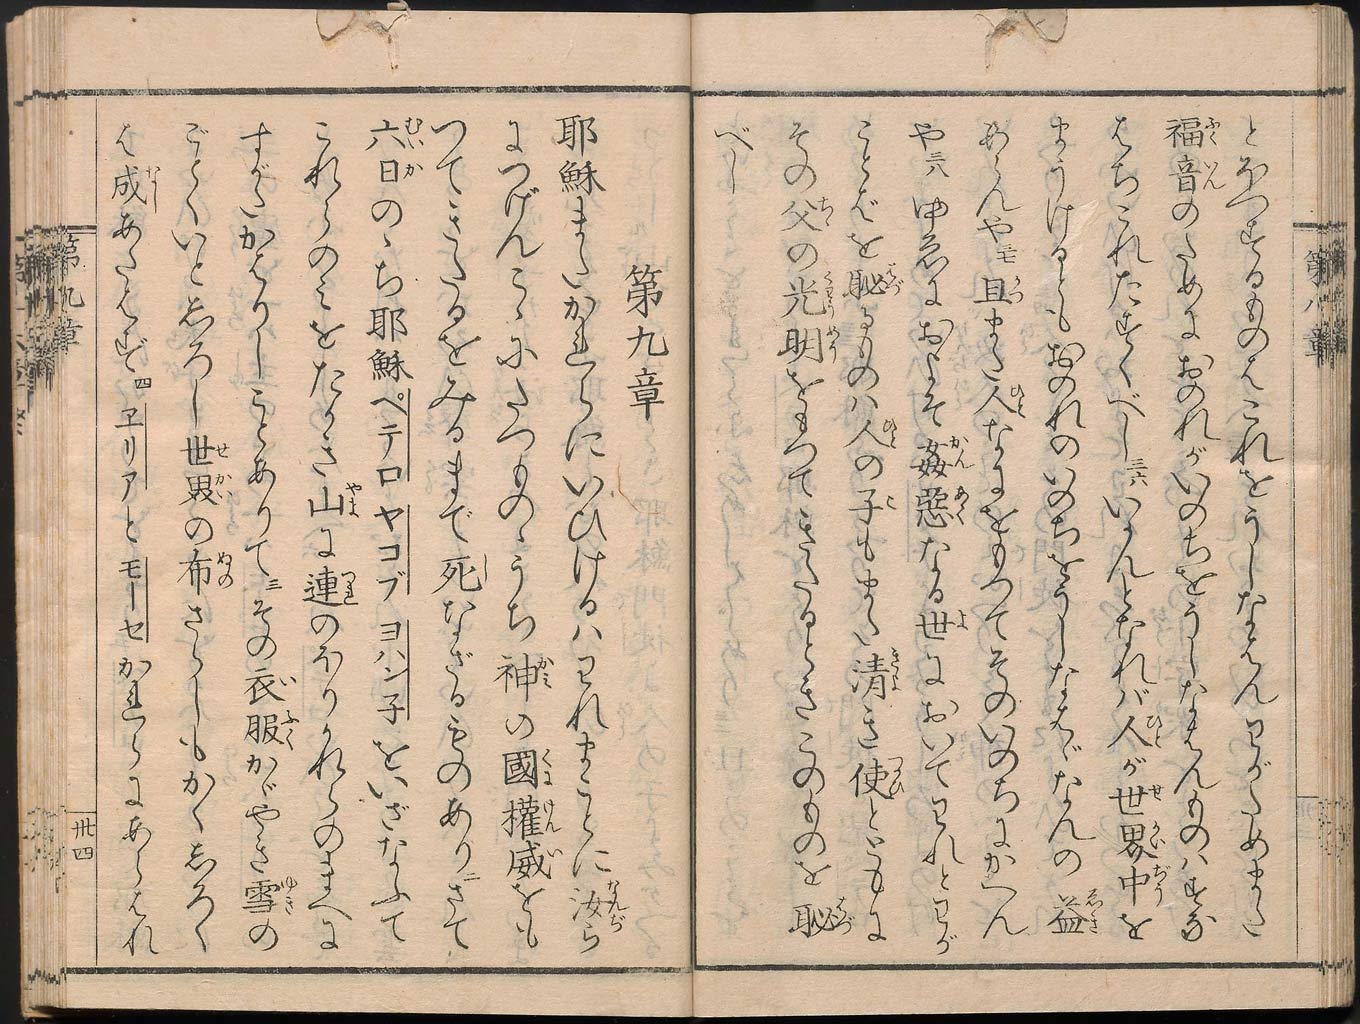 第八章
とほつするものはこれをうしなはんわがためまた
福音のためにおのれがいのちをうしなはんものハすな
はちこれをたすくべし三六いかんとなれバ人が世界中を
まうけるともおのれのいのちをうしなはゞなんの益
あらんや三七且また人なにをもつてそのいのちにかへん
や三八ゆゑにおよそ姦惡なる世においてわれとわが
ことばを恥るものハ人の子もまた清き使とともに
その父の光明をもつてきたるときこのものを恥
べし
第九章
耶穌またかれらにいひけるハわれまことに汝ら
につげんこゝにたつものゝうち神の國權威をも
つてきたるをみるまで死なざるものあり二さて
六日のゝち耶穌ペテロヤコブヨハン子をいざなふて
これらのみをたかき山に連のぼりかれらのまへに
すがたかはりしことありて三その衣服かゞやき雪の
ごとくいとしろし世界の布さらしもかくしろく
は成あたはず四ヱリアとモーセかれらにあらはれ
第九章
卅四